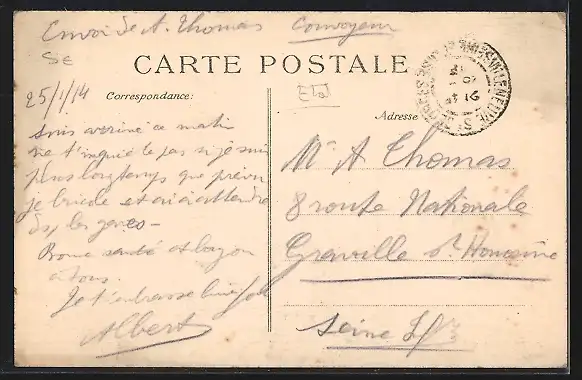 Envoi de A. Thomas Convoyeur
CARTE POSTALE
25/1/14
Correspondance:
Adresse
suis arrivé ce matin
ne t'inquiète pas si je suis
plus longtemps que prévu
je et ai à attendre
ds les gares –
Bonne santé et
à tous.
Je t'embrasse bien
Albert
Mr A Thomas
8 route Nationale
Graville Ste Honorine
Seine Infre